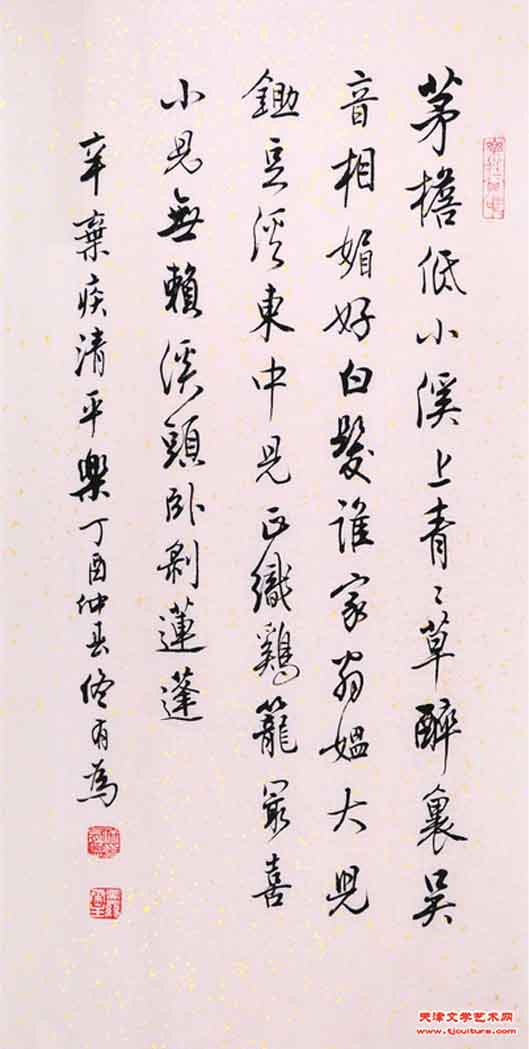 茅檐低小溪上青〻草醉裏吴
音相媚好白髮誰家翁媪大兒
鋤豆溪東中兒正織鷄籠最喜
小兒無賴溪頭卧剥蓮蓬
辛棄疾清平樂丁酉仲春佟有為
天津文学艺术网
www.tjculture.com